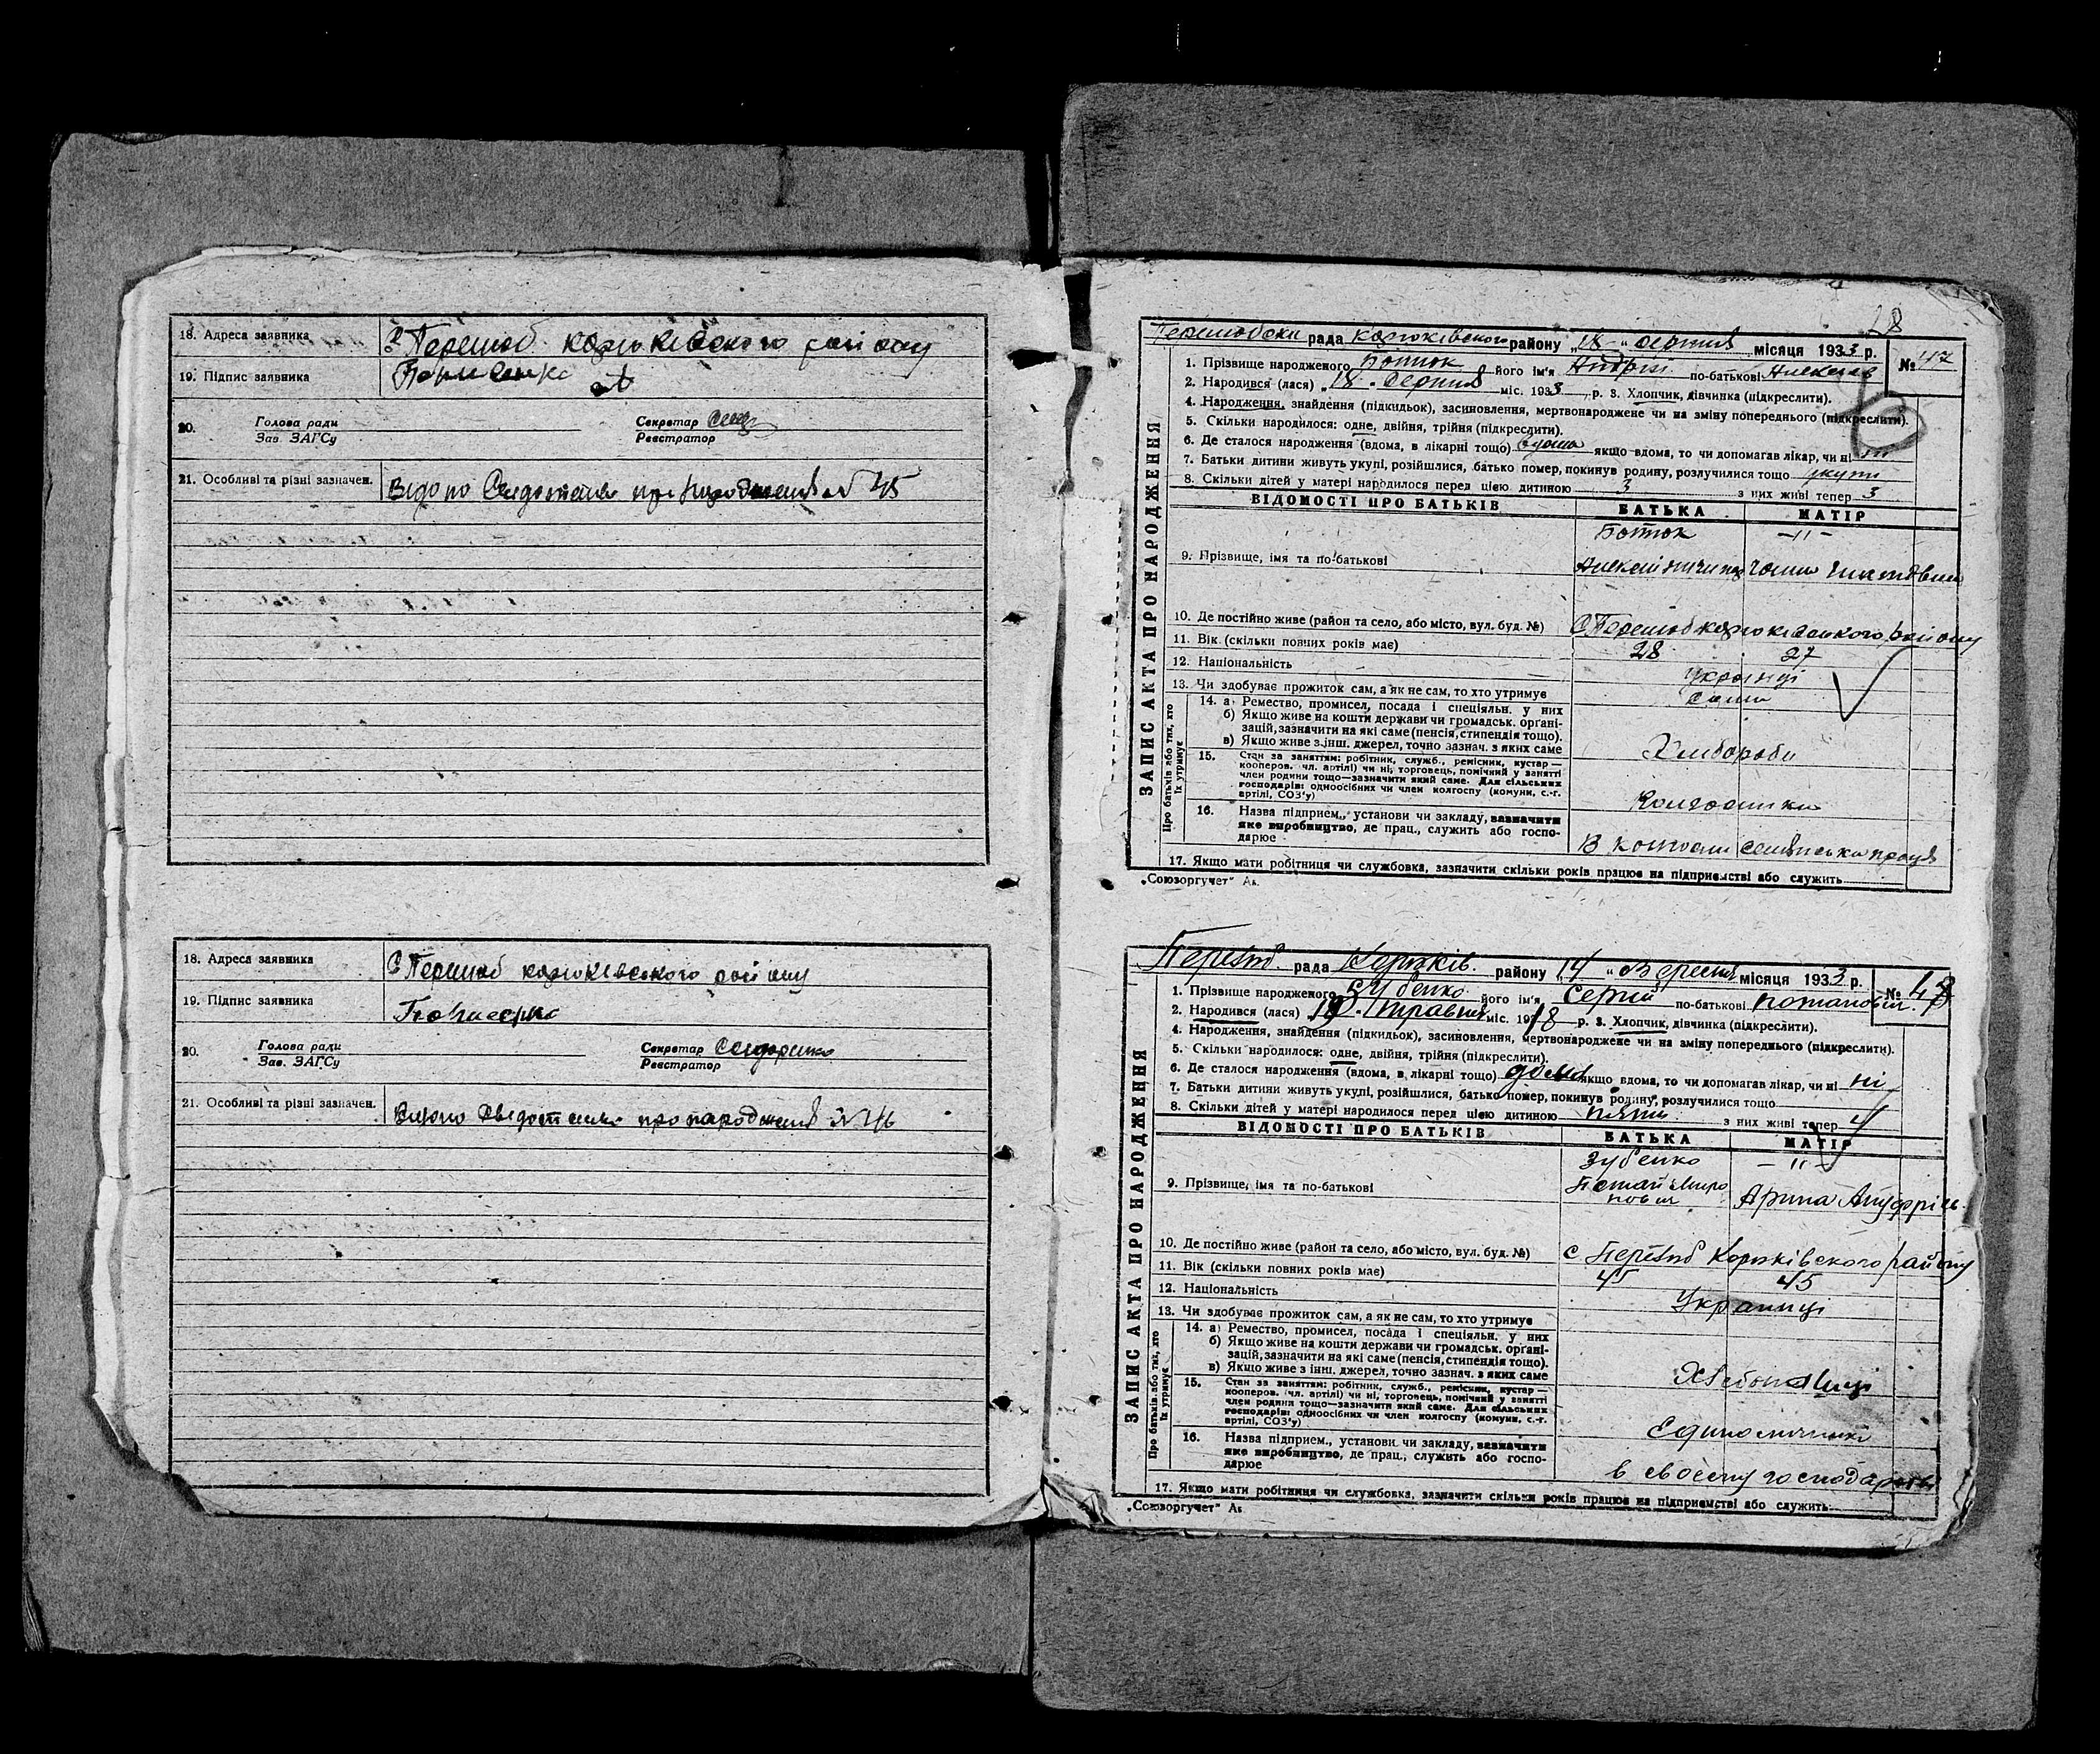 18. Адреса заявника с Перелюб корюківського району
19. Підпис заявника
20. Голова ради Секретар
Зав. ЗАГСу Реєстратор
21. Особливі та різні зазначен. Видано про народження № 45
18. Адреса заявника с Перелюб корюківського району
19. Підпис заявника
20. Голова ради Секретар
Зав. ЗАГСу Реєстратор
21. Особливі та різні зазначен. Видано Свідотство про народження № 46
28
рада корюківського району „18 “ серпня місяця 1933 р. № 47
1. Прізвище народженого його ім'я Андрій по-батькові
2. Народився (лася) „18 - серпня міс. 1933 р. 3. Хлопчик, дівчинка (підкреслити).
4. Народження, знайдення (підкидьок), засиновлення, мертвонароджене чи на зміну попереднього (підкреслити).
5. Скільки народилося: одне, двійня, трійня (підкреслити).
6. Де сталося народження (вдома, в лікарні тощо) вдома якщо вдома, то чи допомагав лікар, чи ні ні
7. Батьки дитини живуть укупі, розійшлися, батько помер, покинув родину, розлучилися тощо укупі
8. Скільки дітей у матері народилося перед цією дитиною 3 з них живі тепер 3
ВІДОМОСТІ ПРО БАТЬКІВ БАТЬКА МАТІР
— „ —
9. Прізвище, імя та по-батькові
10. Де постійно живе (район та село, або місто, вул. буд. №) с Перелюб корюківського району
11. Вік (скільки повних років має) 28 27
12. Національність Українці
13. Чи здобуває прожиток сам, а як не сам, то хто утримує сами
14. а) Ремество, промисел, посада і спеціяльн. у них
б) Якщо живе на кошти держави чи громадськ. органі-
зацій, зазначити на які саме (пенсія, стипендія тощо).
в) Якщо живе з інш. джерел, точно зазнач. з яких саме Хлибороби
15. Стан за заняттям: робітник, служб., ремісник, кустар —
кооперов. (чл. артілі) чи ні, торговець, помічний у занятті
член родини тощо—зазначити який саме. Для сільських
господарів: одноосібних чи член колгоспу (комуни, с.-г.
артілі, СОЗ'у) Колгоспники
16. Назва підприєм., установи чи закладу, зазначити
яке виробництво, де прац., служить або госпо-
дарює В колгоспи
17. Якщо мати робітниця чи службовка, зазначити скільки років працює на підприємстві або служить
ЗАПИС АКТА ПРО НАРОДЖЕННЯ
Про батьків або тих, хто
їх утримує
„Союзоргучет“ Ак.
Перелюб. рада Корюків. району „14 “ Вересня місяця 1933 р. № 48
1. Прізвище народженого Зубенко його ім'я Сергій по-батькові Потапович
2. Народився (лася) Травня міс. 1918 р. 3. Хлопчик, дівчинка (підкреслити).
4. Народження, знайдення (підкидьок), засиновлення, мертвонароджене чи на зміну попереднього (підкреслити).
5. Скільки народилося: одне, двійня, трійня (підкреслити).
6. Де сталося народження (вдома, в лікарні тощо) якщо вдома, то чи допомагав лікар, чи ні ні
7. Батьки дитини живуть укупі, розійшлися, батько помер, покинув родину, розлучилися тощо
8. Скільки дітей у матері народилося перед цією дитиною з них живі тепер 4
ВІДОМОСТІ ПРО БАТЬКІВ БАТЬКА МАТІР
Зубенко — „ —
9. Прізвище, імя та по-батькові Арина
10. Де постійно живе (район та село, або місто, вул. буд. №) с Перелюб Корюківського району
11. Вік (скільки повних років має) 45 45
12. Національність Українці
13. Чи здобуває прожиток сам, а як не сам, то хто утримує
14. а) Ремество, промисел, посада і спеціяльн. у них
б) Якщо живе на кошти держави чи громадськ. органі-
зацій, зазначити на які саме (пенсія, стипендія тощо).
в) Якщо живе з інш. джерел, точно зазнач. з яких саме
15. Стан за заняттям: робітник, служб., ремісник, кустар —
кооперов. (чл. артілі) чи ні, торговець, помічний у занятті
член родини тощо—зазначити який саме. Для сільських
господарів: одноосібних чи член колгоспу (комуни, с.-г.
артілі, СОЗ'у)
16. Назва підприєм., установи чи закладу, зазначити
яке виробництво, де прац., служить або госпо-
дарює в своему господарстві
17. Якщо мати робітниця чи службовка, зазначити скільки років працює на підприємстві або служить
ЗАПИС АКТА ПРО НАРОДЖЕННЯ
Про батьків або тих, хто
їх утримує
„Союзоргучет“ Ак.